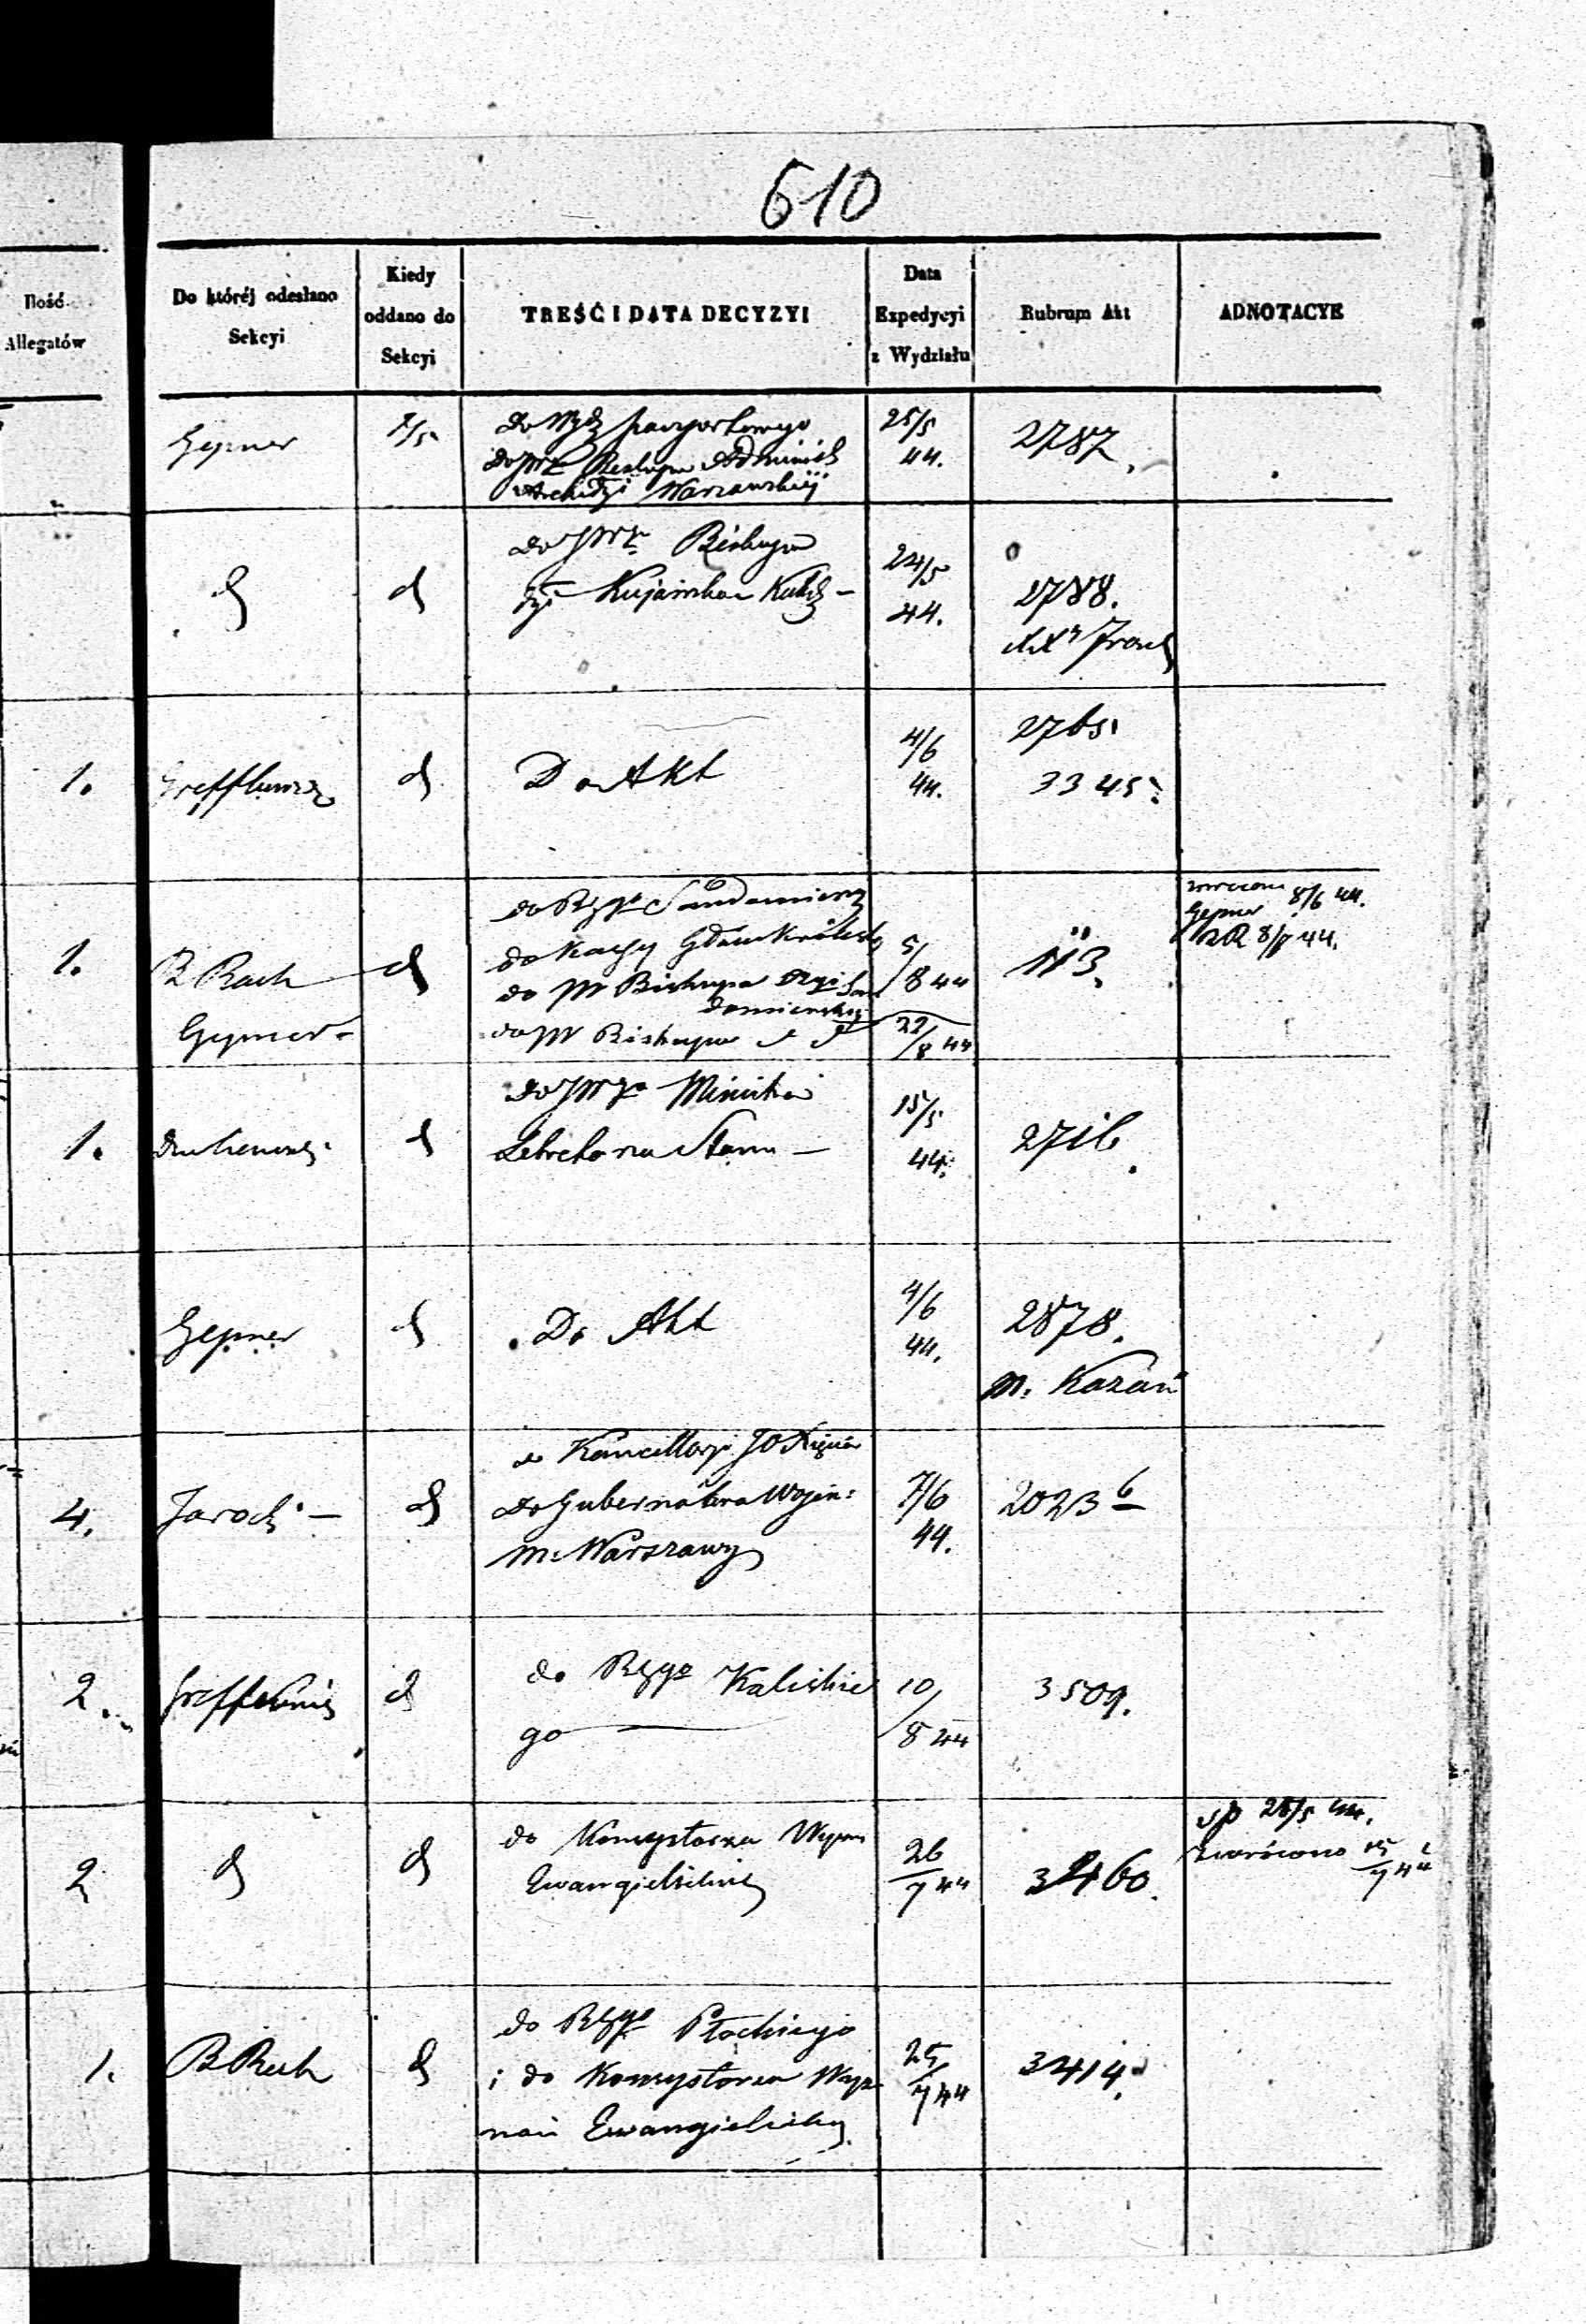 610
Ilość
Allegatów
Do któréj odesłano
Sekcyi
Kiedy
oddano do
Sekcyi
TREŚĆ I DATA DECYZYI
Data
Expedycyi
z Wydziału
Rubrum Akt
ADNOTACYE
Gepner
do Wydz paszportowego
Biskupa
Warszawskiej
25/5
44.
2787.
do JW Biskupa
Kujawsko Kalis
24/5
44.
2788.
1.
Do Akt
4/6
44.
2765
3345
1.
B Rach
Gepner
do Rzgo Sandomiersk
do Kassy Główn Królestw
do JW Biskupa Dyi San
domierskiej
do JW Biskupa
5/8 44
22/8 44
113.
zwrócono 8/6 44.
Gepner
8/7 44.
1.
do JWgo Ministra
Sekretarza Stanu
15/5
44.
2716.
Gepner
Do Akt
4/6
44.
2878.
m. Kazań
4.
Jarocki
do Kancellaryi JO Księcia
do Gubernatora Wojen:
m: Warszawy
7/6
44.
2023 b
2.
do Rzgo Kaliskie
go
10/8 44
3509.
2
do Konsystorza Wyzn
Ewangielickie
26/7 44
3460.
28/5 44.
zwrócono 15/7 44
1.
B Rach
do Rzgo Płockiego
i do Konsystorza Wyz
nań Ewangielickich
25/7 44
3414.